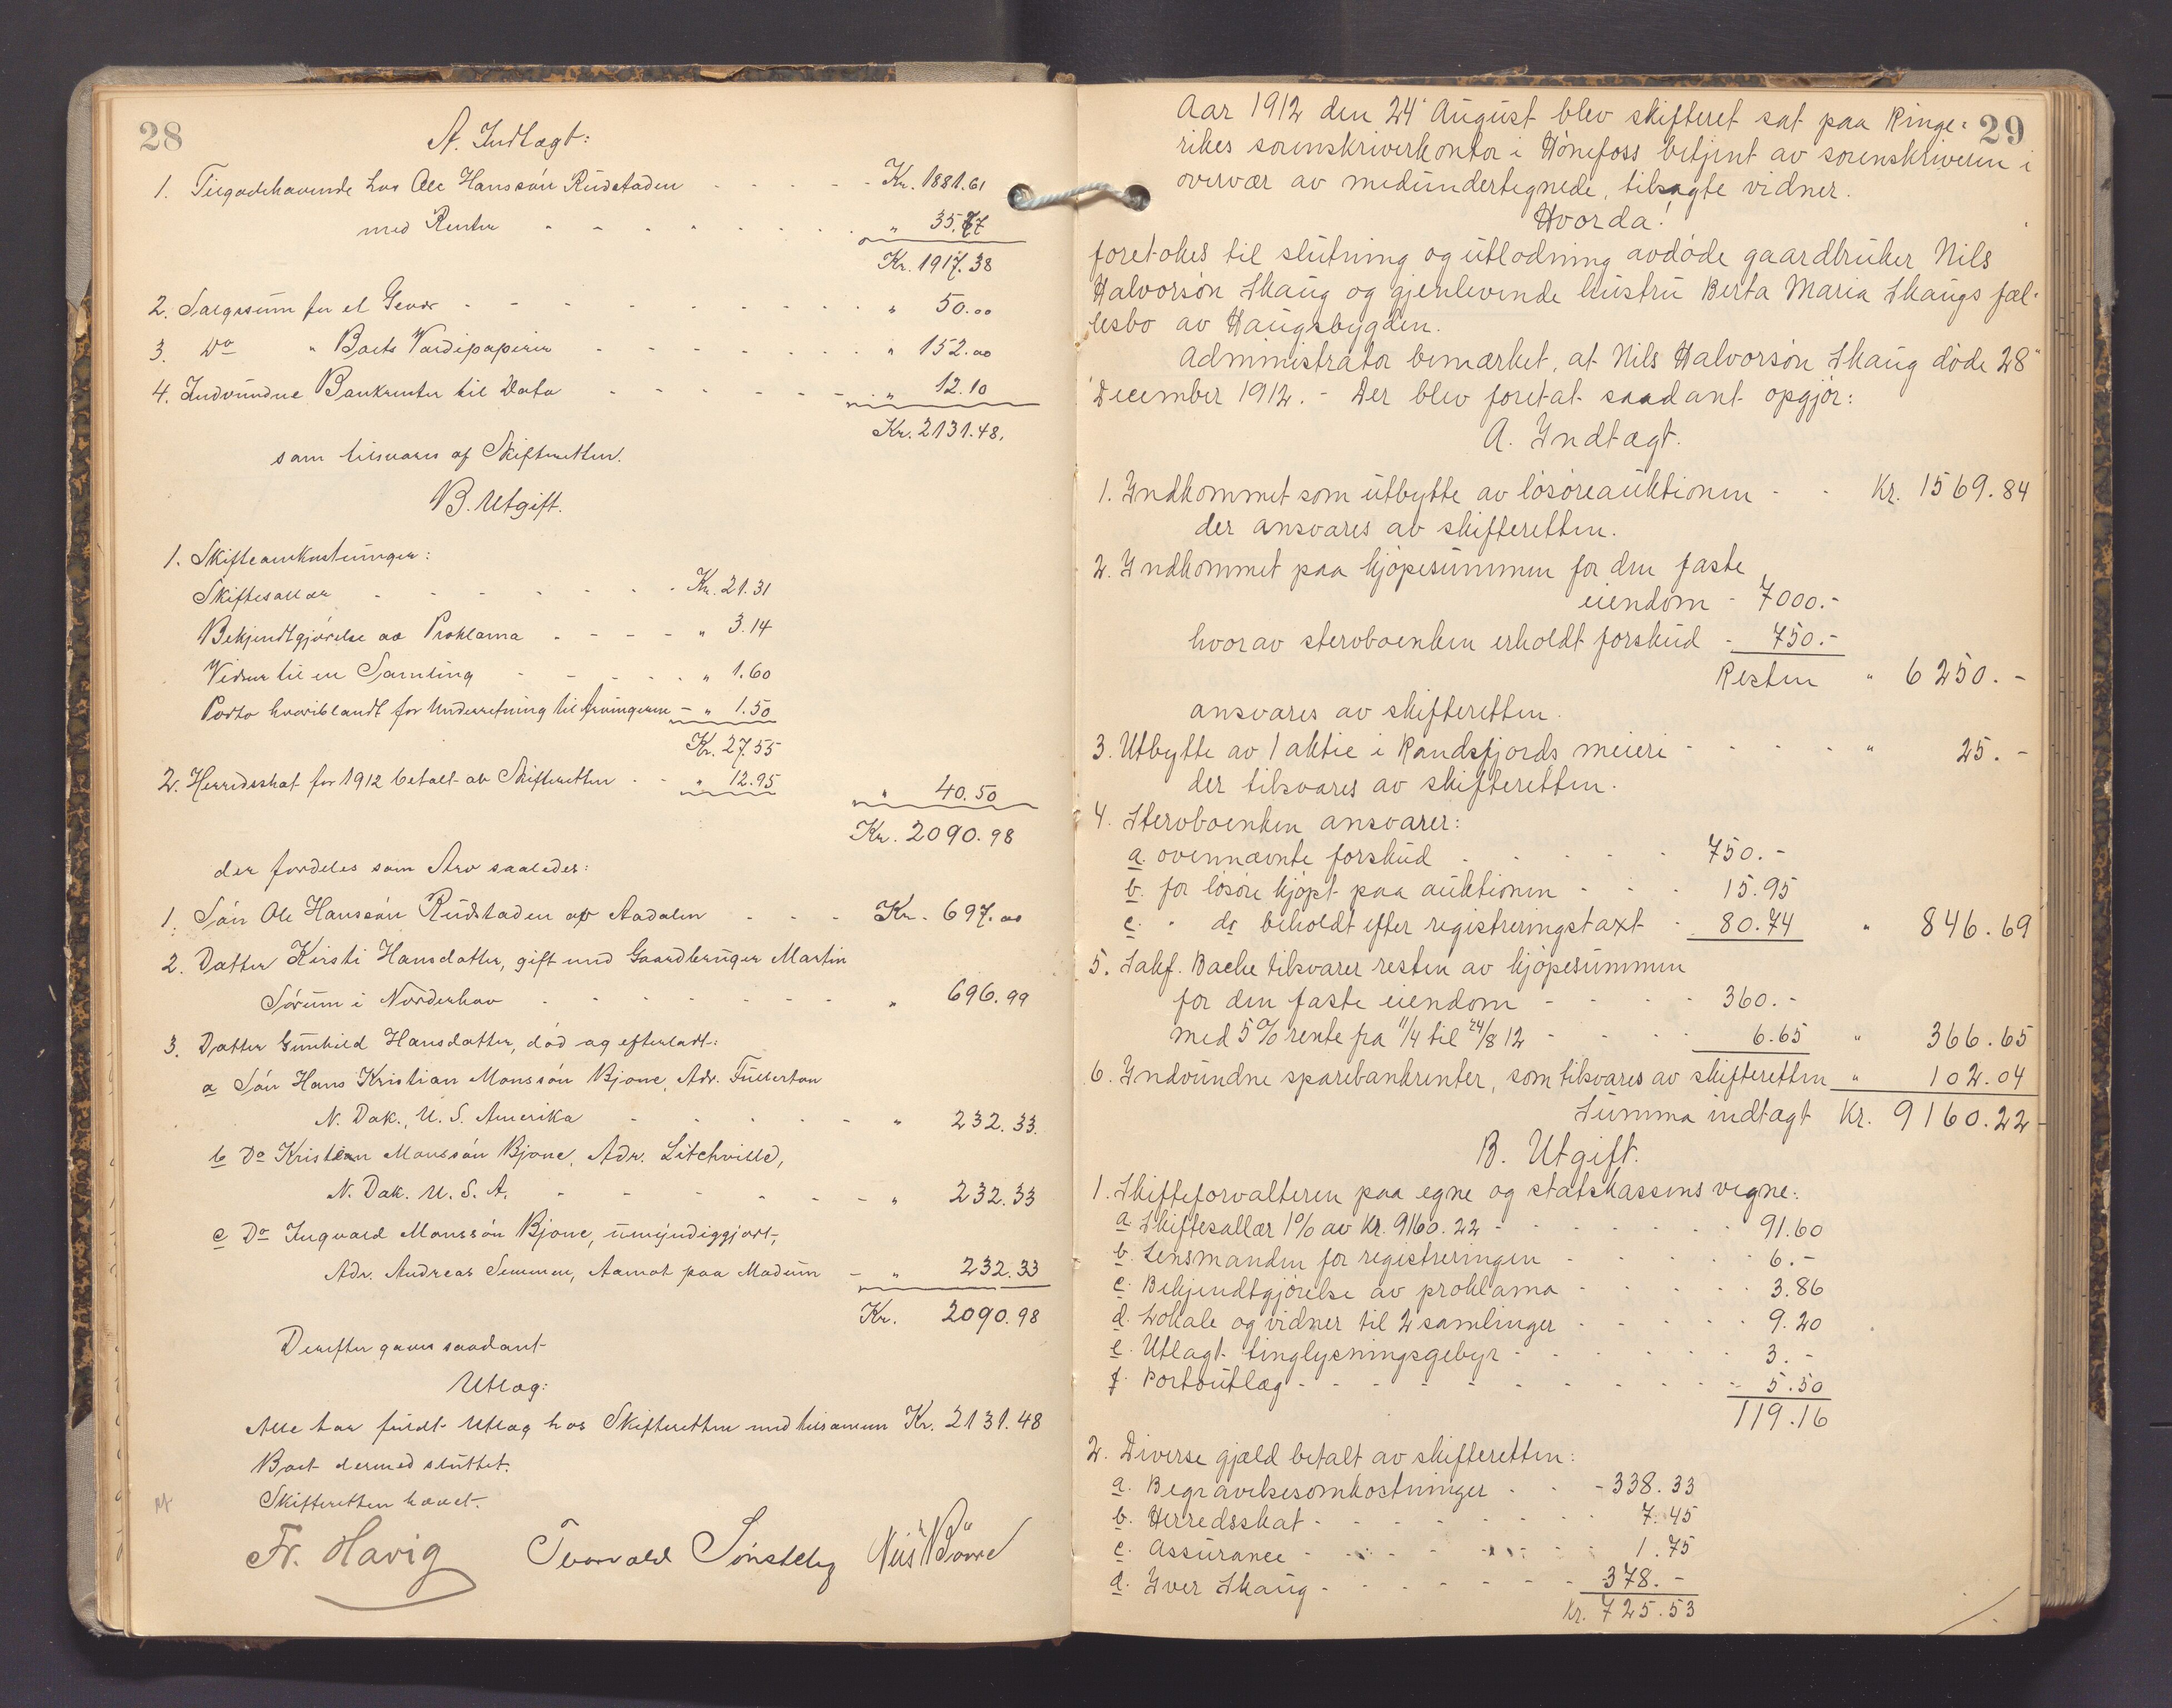 28
A. Indtægt:
1. Tilgodehavende hos Ole Hanssón Rudstaden - - - - - Kr. 1881.61
med Renter - - - - - - - " 35.77
Kr. 1917.38
2. Salgssum for et Gevær - - - - - - - " 50.00
3. Do " Boets Værdipapirer - - - - - - " 152.00
4. Indvundne Bankrenter til Dato - - - - - " 12.10
Kr. 2131.48.
som tilsvares af Skifteretten.
B. Utgift.
1. Skifteomkostninger:
Skiftesallær - - - - - - Kr. 21.31
Bekjendtgjørelse av Proklama - - - - " 3.14
Vidner til en Samling - - - - - " 1.60
Porto hvoriblandt for Underretning til Arvingerne - " 1.50
Kr. 27.55
2. Herredsskat for 1912 betalt av Skifteretten - - " 12.95
" 40.50
Kr. 2090.98
der fordeles som Arv saaledes:
1. Són Ole Hanssón Rudstaden af Aadalen - - - Kr. 697.00
2. Datter Kirsti Hansdatter, gift med Gaardbruger Martin
Sórum i Norderhov - - - - - - " 696.99
3. Datter Gunhild Hansdatter, dód og efterladt:
a Són Hans Kristian Monssón Bjone, Adr. Fullerton
N. Dak., U. S. Amerika - - - - - " 232.33.
b Do Kristian Monssón Bjone, Adr. Litchville,
N. Dak. U. S. A. - - - - - - " 232.33
c Do Ingvald Monssón Bjone, umyndiggjort,
Adr. Andreas Semmen, Aamot paa Modum - " 232.33
Kr. 2090.98
Derefter gaves saadant
Utlæg:
Alle har fuldt Utlæg hos Skifteretten med tilsammen Kr. 2131.48
Boet dermed sluttet.
Skifteretten hævet.
Fr. Havig Thorvald Sónsteby Nils
29
Aar 1912 den 24' August blev skifteret sat paa Ringe=
rikes sorenskriverkontor i Hónefoss betjent av sorenskriveren i
overvær av medundertegnede, tilsagte vidner.
Hvorda!
foretokes til slutning og utlodning avdóde gaardbruker Nils
Halvorsón Skaug og gjenlevende hustru Berta Maria Skaugs fæl=
lesbo av Haugsbygden.
Administrator bemærket, at Nils Halvorsón Skaug dóde 28"
December 1912. - Der blev foretat saadant opgjór:
A. Indtægt.
1. Indkommet som utbytte av lósóreauktionen - - Kr. 1569.84
der ansvares av skifteretten.
2. Indkommet paa kjópesummen for den faste
eiendom - 7000.-
hvorav stervboenken erholdt forskud - 750.-
Resten " 6250.-
ansvares av skifteretten.
3. Utbytte av 1 aktie i Randsfjords meieri - - - - " 25.-
der tilsvares av skifteretten.
4. Stervboenken ansvarer:
a. ovennævnte forskud - - - - - 750.-
b. for lósóre kjópt paa auktionen - - - 15.95
c. " do beholdt efter registreringstaxt - 80.74 " 846.69
5. Sakf. Bache tilsvarer resten av kjópesummen
for den faste eiendom - - - - 360.-
med 5% rente fra 11/4 til 24/8 12 - - - - 6.65 " 366.65
6. Indvundne sparebankrenter, som tilsvares av skifteretten " 102.04
Summa indtægt Kr. 9160.22
B. Utgift.
1. Skifteforvalteren paa egne og statskassens vegne:
a. Skiftesallær 1% av Kr. 9160.22 - - - - - - - 91.60
b. Lensmanden for registreringen - - - - - 6.-
c. Bekjendtgjórelse av proklama - - - - - 3.86
d. Lokale og vidner til 2 samlinger - - - - - 9.20
e. Utlagt tinglysningsgebyr - - - - - - - 3.-
f. Portoutlæg - - - - - - - - - - 5.50
119.16
2. Diverse gjæld betalt av skifteretten:
a. Begravelsesomkostninger - - - 338.33
b. Herredsskat - - - - - - - - 7.45
c. Assurance - - - - - - - 1.75
d. Iver Skaug - - - - - - - 378.-
Kr. 725.53